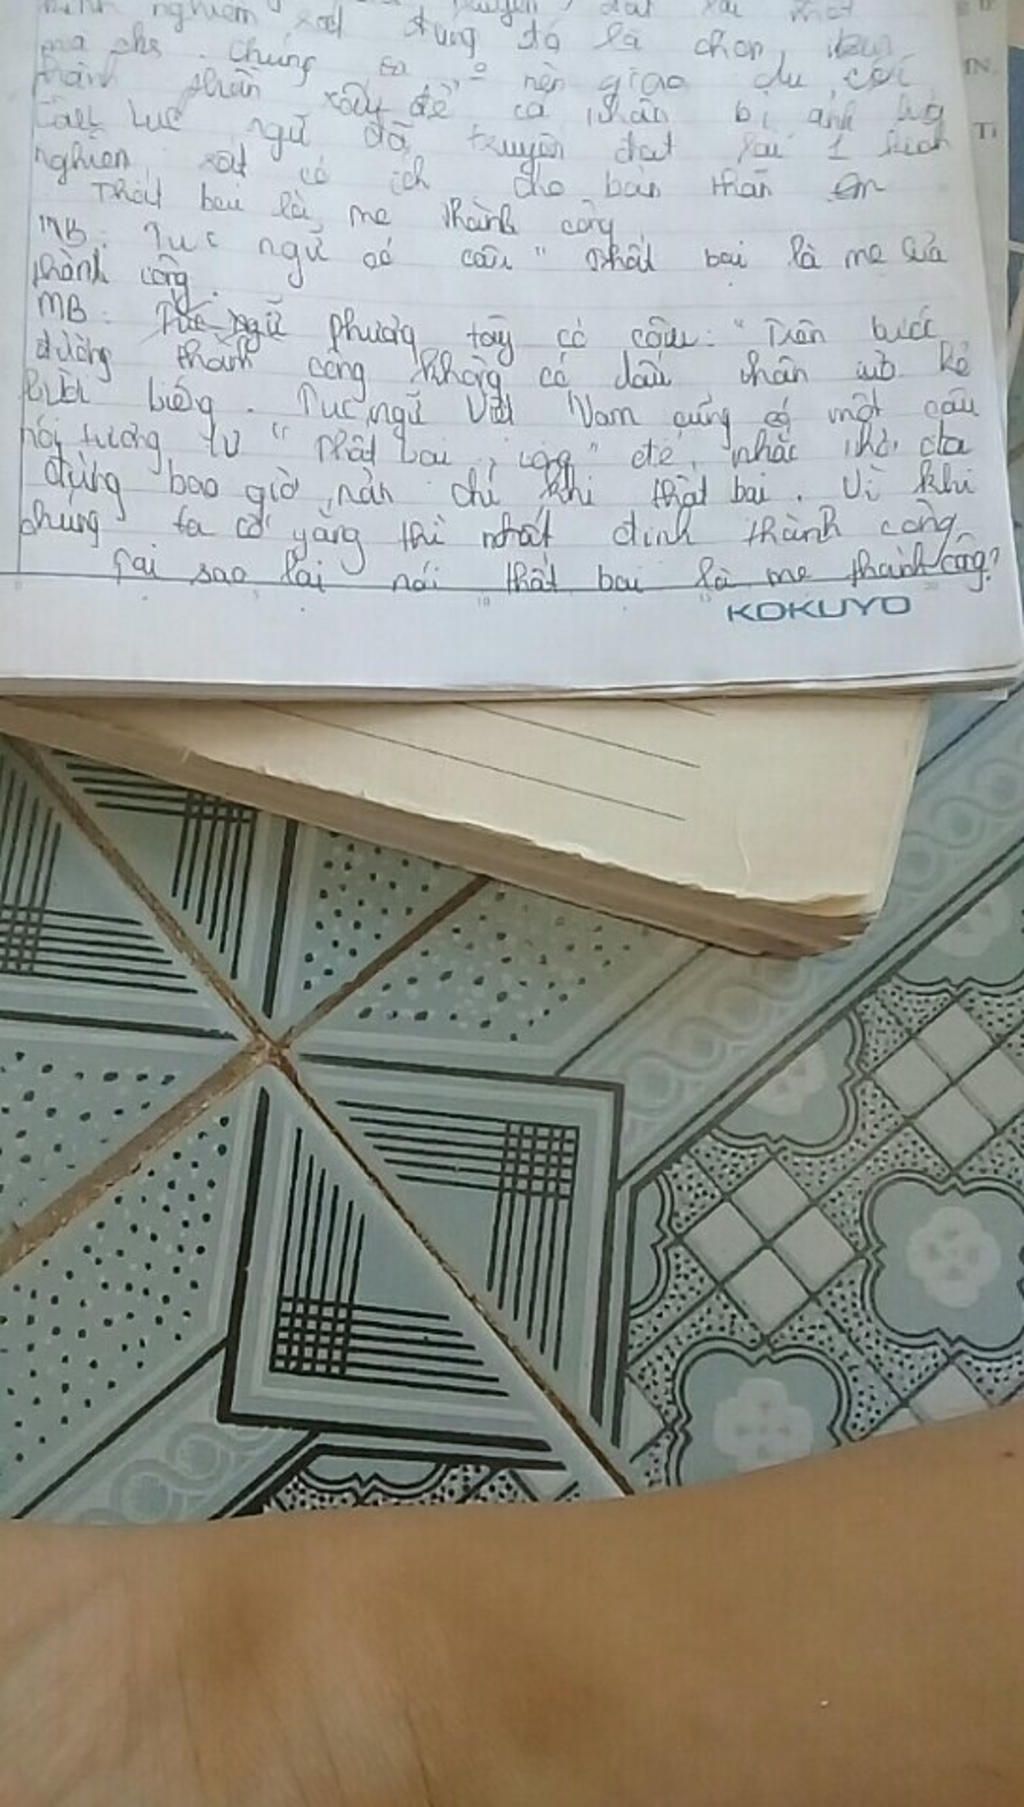 nghiệm đúng đó là chọn
Chúng ta nên giao du
xấu để cá nhân bị ảnh
Câu tục ngữ đã truyền đạt lại 1 kinh
nghiệm rất có ích cho bản thân em
Thất bại là mẹ thành công
MB: Tục ngữ có câu " Thất bại là mẹ của
thành công.
MB: Tục ngữ Phương tây có câu: "Trên bước
đường thành công không có dấu chân của kẻ
lười biếng. Tục ngữ Việt Nam cũng có một câu
nói tương tự " Thất bại , công" để nhắc nhở ta
đừng bao giờ nản chí khi thất bại. Vì khi
chúng ta cố gắng thì nhất định thành công
Tại sao lại nói thất bại là mẹ thành công?
KOKUYO
IN
TI